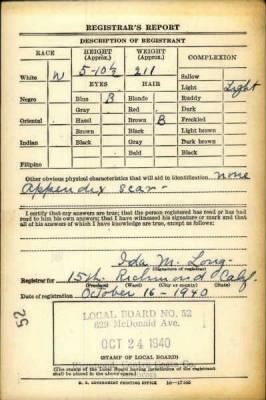 REGISTRAR'S REPORT
DESCRIPTION OF REGISTRANT
RACE HEIGHT (Approx.) WEIGHT (Approx.) COMPLEXION
White W 5-10½ 211 Sallow
EYES HAIR Light Light
Negro Blue B Blonde Ruddy
Gray Red Dark
Oriental Hazel Brown B Freckled
Brown Black Light brown
Indian Black Gray Dark brown
Bald Black
Filipino
Other obvious physical characteristics that will aid in identification none
Appendix scar
I certify that my answers are true; that the person registered has read or has had read to him his own answers; that I have witnessed his signature or mark and that all of his answers of which I have knowledge are true, except as follows:
Ida M. Long
(Signature of registrar)
Registrar for 15th Richmond Calif.
(Precinct) (Ward) (City or county) (State)
Date of registration October 16-1940
LOCAL BOARD NO. 52
629 McDonald Ave.
OCT 24 1940
(STAMP OF LOCAL BOARD)
(The stamp of the Local Board having jurisdiction of the registrant shall be placed in the above space.)
U. S. GOVERNMENT PRINTING OFFICE
52